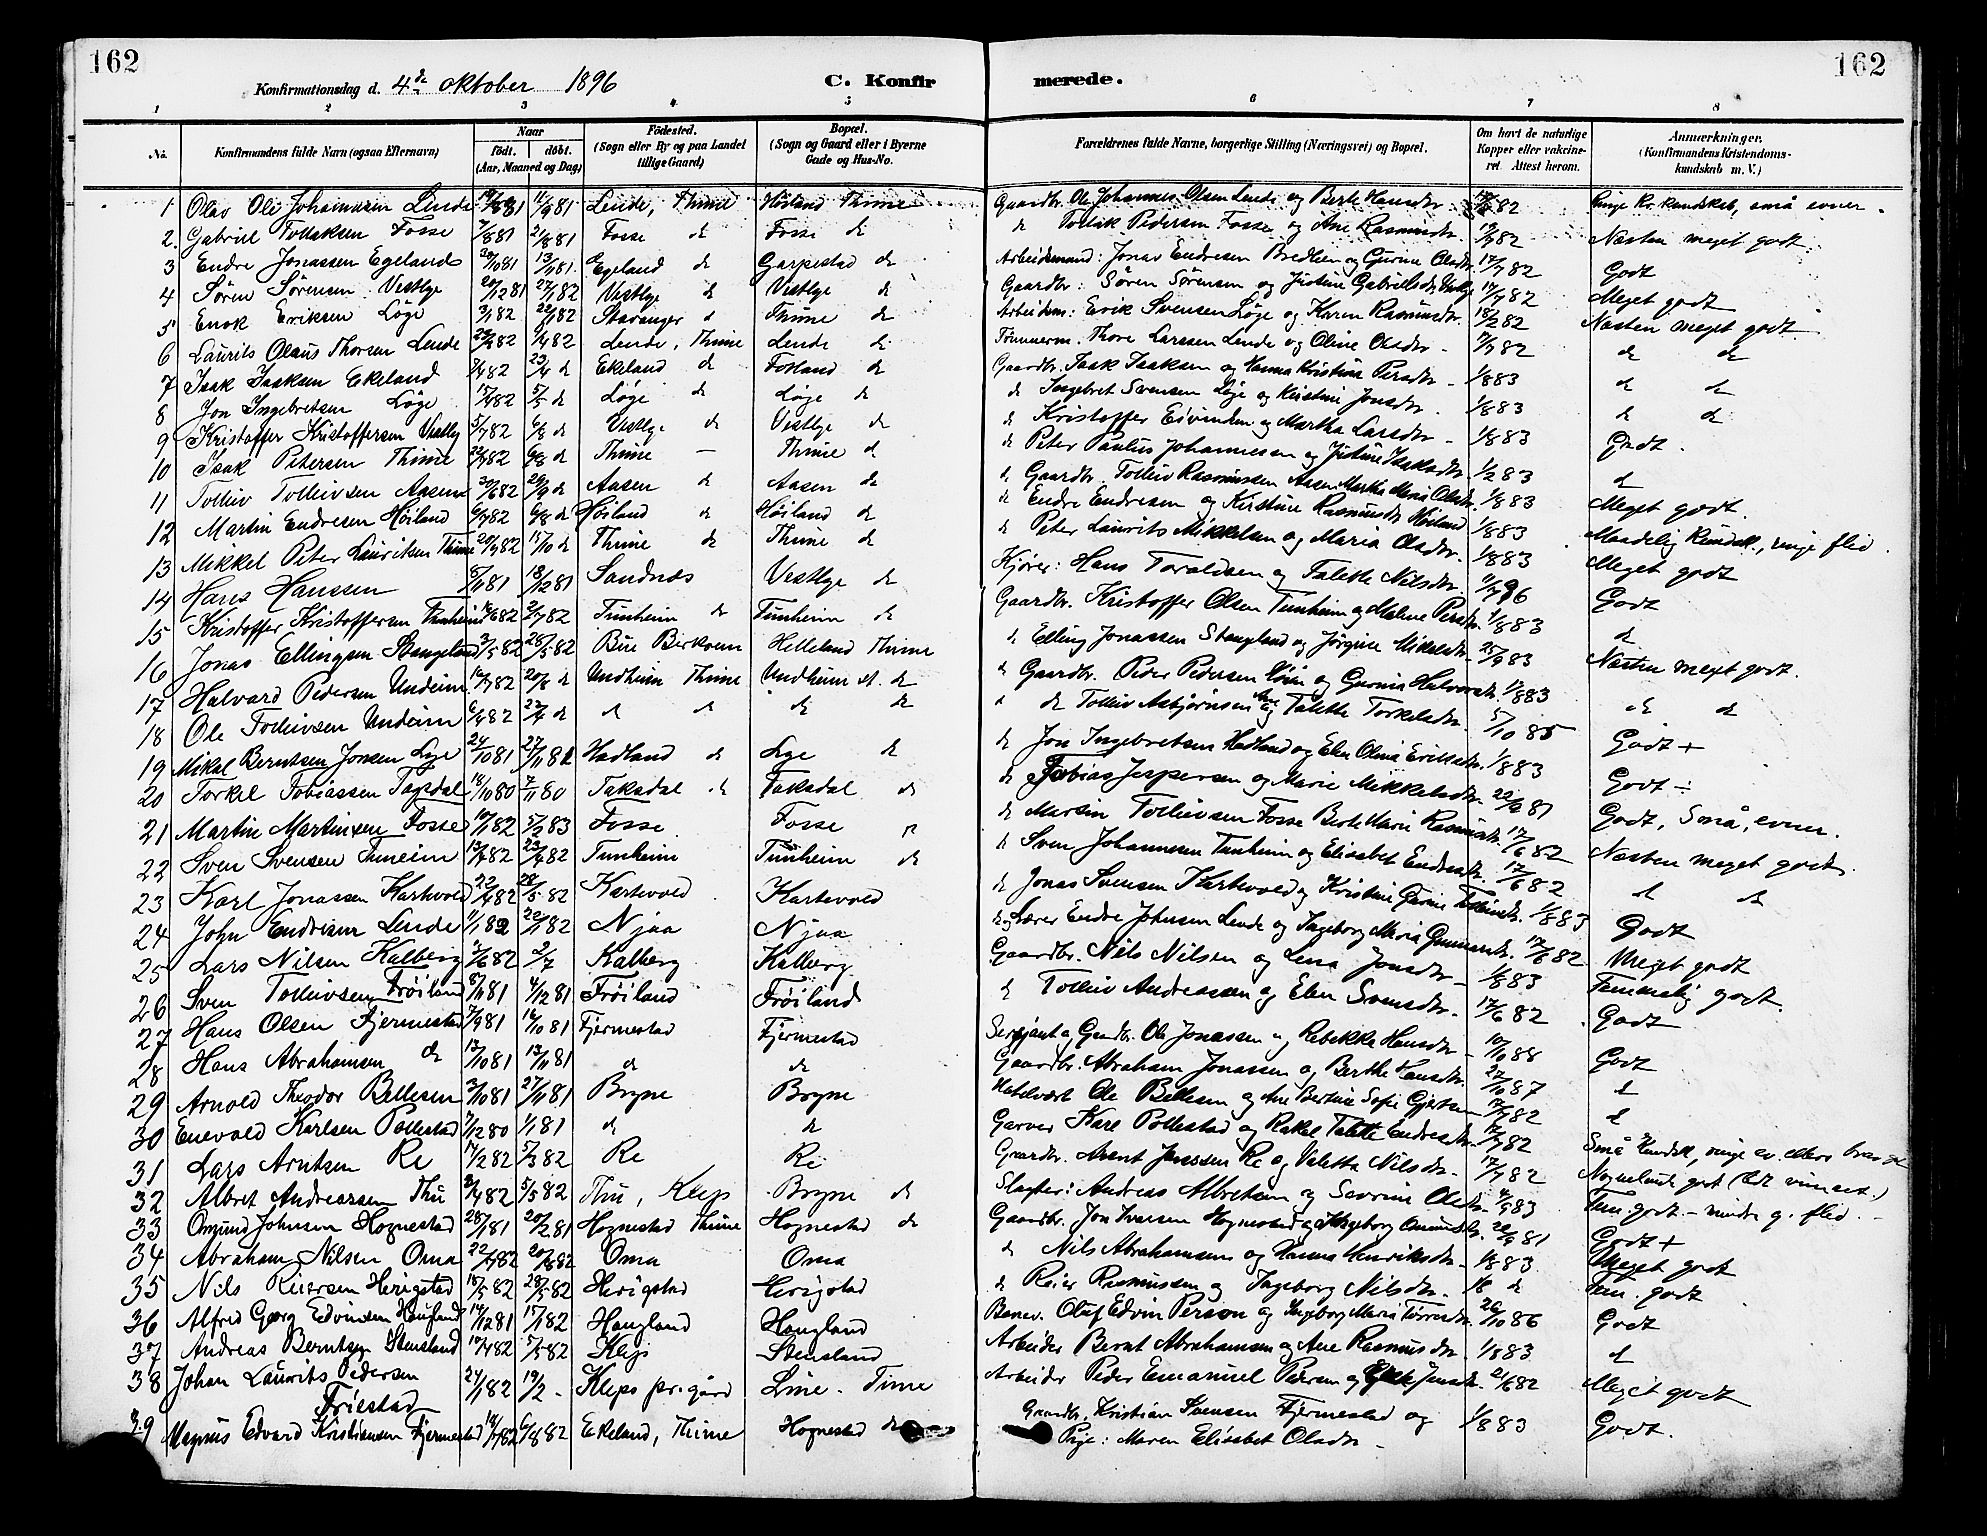 162
162
Konfirmationsdag d. 4de oktober 1896
C. Konfirmerede.
1 2 3 4 5 6 7 8
No.
Konfirmandens fulde Navn (ogsaa Efternavn)
Naar
født. døbt.
(Aar, Maaned og Dag)
Fødested.
(Sogn eller By og paa Landet tillige Gaard)
Bopæl.
(Sogn og Gaard eller i Byerne Gade og Hus-No.
Forældrenes fulde Navne, borgerlige Stilling (Næringsvei) og Bopæl.
Om havt de naturlige Kopper eller vakcineret. Attest herom.
Anmærkninger.
(Konfirmandens Kristendomskundskab m. V.)
1 Olav Ole Johannesen Lende 11/9 81 Lende, Thime Høiland Thime Gaardbr. Ole Johannes Olsen Lende og Berte Hansdtr. Ringe Kr. kundskab, små evner.
2. Gabriel Tollaksen Fosse 7/8 81 21/8 81 Fosse de Fosse de de Tollak Pedersen Fosse og Ane Rasmusdtr. Næsten meget godt.
3 Endre Jonassen Egeland 13/11 81 Egeland de Garpestad de Arbeidsmand: Jonas Endresen Bredlien og Gurine Olsdtr. 17/7 82 Godt
4 Søren Sørensen Vestlye 20/12 81 22/1 82 Vestlye de Vestlye de Gaardbr: Søren Sørensen og Jistine Gabrielsdtr. 17/7 82 Meget godt
5 Enok Eriksen Løge 3/1 82 22/1 82 Stavanger Thime de Arbeidsm: Erik Svensen Løge og Karen Rasmusdtr. 18/2 82 Næsten meget godt.
6 Laurits Olaus Thorsen Lende 1/4 82 Lende, Thime Lende de Tømmerm. Thore Larssen Lende og Oline Olsdtr. 17/7 82 de de
7 Isak Isaksen Ekeland 3/4 82 23/4 de Ekeland de Fosland de Gaardbr. Isak Isaksen og Hanna Kristine Persdtr. 1/8 83 de de
8 Jon Ingebretsen Løge 17/4 82 5/5 de Løge de Løge de de Ingebret Svensen Løge og Kristine Jonsdtr. 1/8 83 de de
9 Kristoffer Kristoffersen Vestly 5/7 82 6/8 de Vestlye de Vestlye de de Kristoffer Eivindsen og Martha Larsdtr. 1/8 83 Godt.
10 Isak Petersen Thime 22/7 82 6/8 de Thime — Thime de de Peter Paulus Johannesen og Jistine Isaksdtr. 1/2 83 de
11 Tolleiv Tolleivsen Aasen 30/6 82 de Aasen de Aasen de de Gaardbr. Tolleiv Rasmussen Aasen Martha Maria Olsdtr. 1/8 83 Meget godt.
12 Martin Endresen Høiland 6/7 82 6/8 de Høiland de Høiland de de Endre Endresen og Kirstine Rasmusdtr Høiland 1/8 83 Maadelig Kundsk., ringe flid
13 Mikkel Peter Lauritsen Thime 20/7 82 15/10 de Thime de Thime de de Peter Laurits Mikkelsen og Maria Olsdtr. 1/8 83 Meget godt
14 Hans Hanssen 8/11 81 18/12 81 Sandnæs Vestlye de Kjører: Hans Toraldsen og Talette Nilsdtr. Godt
15 Kristoffer Kristoffersen Tunheim 2/7 82 Tunheim de Tunheim de Gaardbr. Kristoffer Olsen Tunheim og Malene Persdtr. 1/8 83 de
16 Jonas Ellingsen Stangeland 3/5 82 28/5 82 Bue Berkrem Helleland Thime de Elling Jonassen Stangland og Jørgine Mikalsdtr. 25/9 83 Næsten meget godt.
17 Halvard Pedersen Undeim 16/7 82 20/8 de Undheim Thime Undheim de Gaardbr. Peder Pedersen og Gurina Halvorsdtr. 1/8 83 de de
18 Ole Tolleivsen Undeim 6/4 82 22/4 de de de de de de de Tolleiv Asbjørnsen og Talette Torkelsdtr. 5/10 85 Godt +
19 Mikal Berntsen Jonsen Lye 24/10 81 27/11 81 Hadland de Lye de de Jon Ingebretsen Hadland og Elen Olina Eriksdtr. 1/8 83 Godt ÷
20 Torkel Tobiassen Tagsdal 18/10 80 7/11 80 Taksdal de Taksdal de de Tobias Jespersen og Marie Mikkelsdtr. 81 Godt, Små, evner.
21 Martin Martinsen Fosse 10/1 82 5/2 83 Fosse Fosse de Martin Tolleivsen Fosse Berte Marie Rasmusdtr. 17/6 82 Næsten meget godt.
22 Sven Svensen Tuneim 13/4 82 23/4 82 Tunheim Tunheim de de Sven Johannesen Tunheim og Elisabet Endresdtr. 17/6 82 de de
23 Karl Jonassen Kartevold 22/4 82 28/5 82 Kartevold Kartevold de Jonas Svensen Kartevold og Kristine Gurine Tolleivsdtr. 1/8 83 Godt
24 John Endresen Lende 11/1 82 22/1 82 Njaa Njaa Lærer Endre Johnsen Lende og Ingeborg Maria Gunnarsdtr. 17/6 82 Meget godt
25 Lars Nilsen Kalberg 3/6 82 2/7 Kalberg Kalberg Gaardbr. Nils Nilsen og Lena Jonsdtr. 1/8 83 Temmelig godt.
26 Sven Tolleivsen Frøiland 8/11 81 4/12 81 Frøiland Frøiland de Tolleiv Andreassen og Elen Svensdtr. 17/6 82 Godt
27 Hans Olsen Fjermestad 7/9 81 16/10 81 Fjermestad Fjermestad Sersjant og Gardbr. Ole Jonassen og Rebekka Hansdtr. 10/10 88 Godt
28 Hans Abrahamsen de 13/10 81 13/11 81 de de Gaardbr. Abraham Jonassen og Berthe Hansdtr. 27/10 87 de
29 Arnold Theodor Bellesen 3/10 81 27/11 81 Bryne Bryne Hotelvært Ole Bellesen og Ane Bertine Sofie Gjertsen 17/7 82 de
30 Enevold Karlsen Pollestad 7/12 80 1/1 81 de de Garver Karl Pollestad og Rakel Talette Endresdtr. 17/7 82 Små Kundsk, ringe ev.
31 Lars Arntsen Re 17/2 82 5/3 82 Re Re Gaardbr. Arent Jenssen Re og Valetta Nilsdtr. 17/7 82 Nogenlunde godt
32 Albret Andreassen Thu 3/4 82 5/5 82 Thu, Klep Bryne de Slagter: Andreas Albretsen og Severine Olsdtr. 83 Tem. godt. — mindre g. flid.
33 Omund Johnsen Hognestad 28/1 81 20/2 81 Hognestad Thime Hognestad de Gaardbr. Jon Iversen Hognestad og Ingeborg 81 Godt +
34 Abraham Nilsen Oma 22/7 82 20/8 82 Oma Oma de Nils Abrahamsen og Hanna Henriksdtr. 1/8 83 Meget godt
35 Nils Reiersen Herigstad 15/5 82 28/5 82 Herigstad Herigstad de Reier Rasmussen og Ingeborg Nilsdtr. de Tem. godt
36 Alfred Georg Edvinsen Haugland 14/12 81 15/1 82 Haugland Haugland Banev. Oluf Edvin Person og Ingeborg Maria Tørresdtr. 26/10 86 Godt
37 Andreas Berntsen Stensland 17/4 82 5/5 82 Klep Stensland Arbeider Bernt Abrahamsen og Ane Rasmusdtr. 1/8 83 de
38 Johan Laurits Pedersen Friestad 24/1 82 19/2 - Klep pr.gård Line - Time Arbeider Peder Emanuel Petersen og 82 Meget godt
39 Magnus Edvard Kristiansen Fjermestad 6/8 82 Eekeland, Thime Hognestad de Gaardbr. Kristian Svensen Fjermestad og
Pige: Maren Elisabet Olsdtr — 1/8 83 Godt.